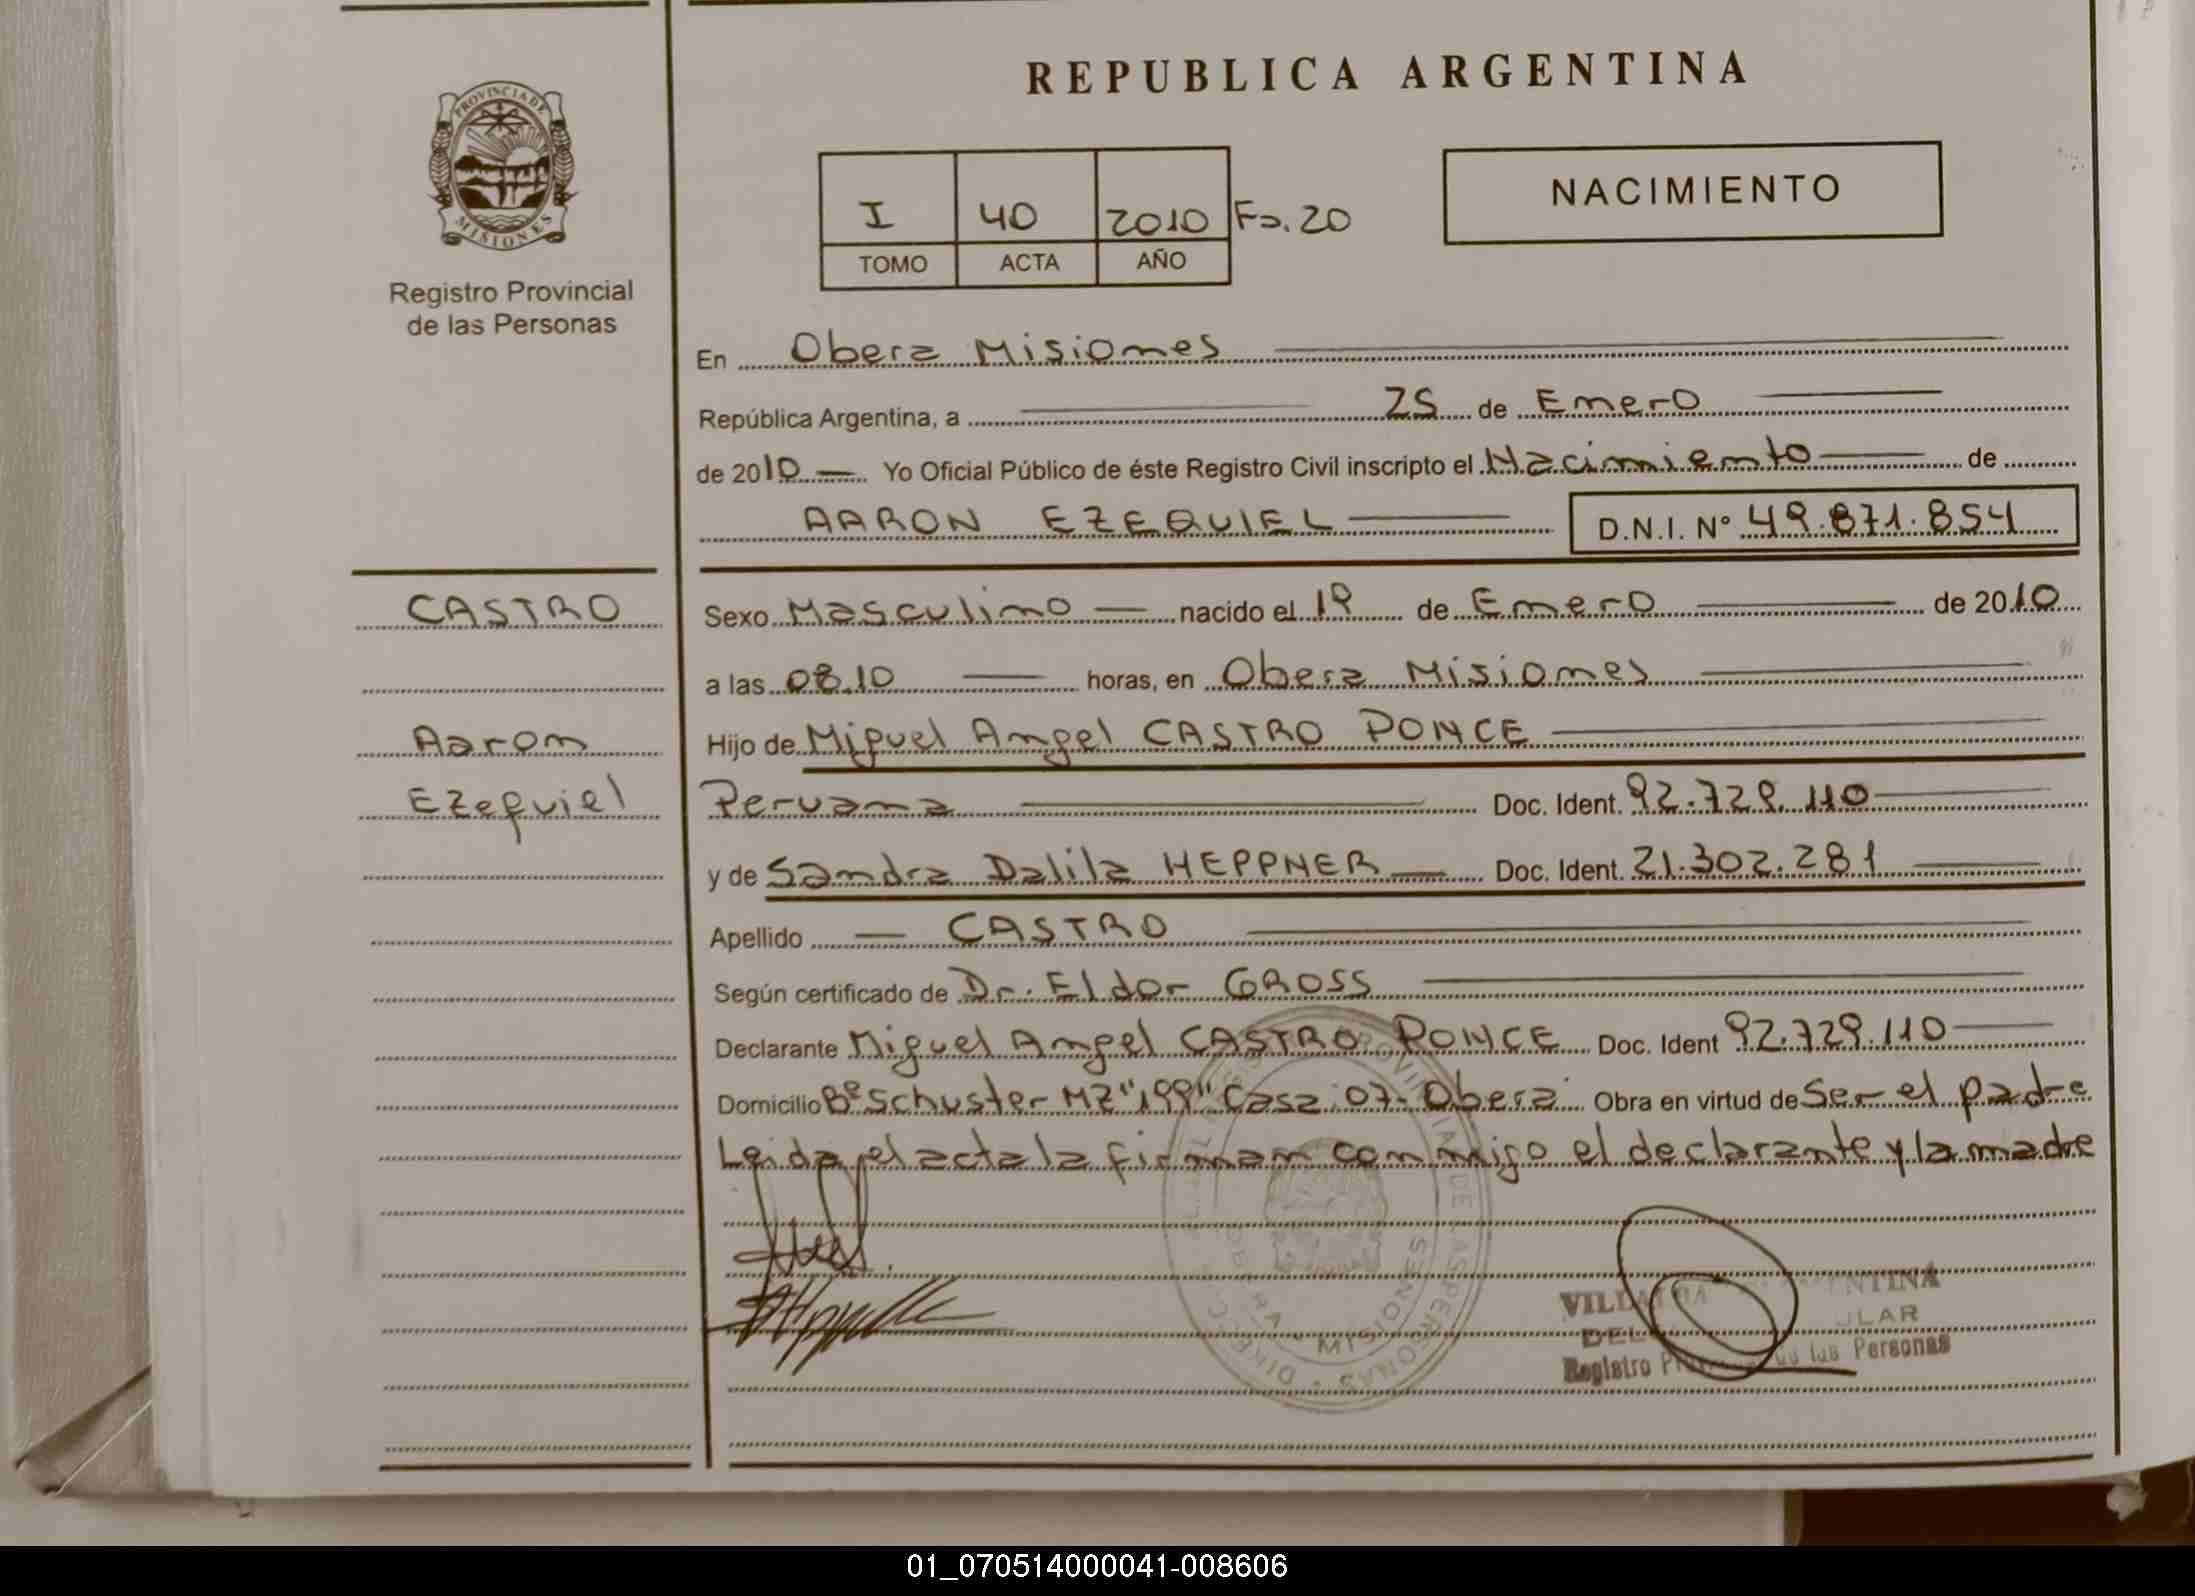 REPUBLICA ARGENTINA
PROVINCIA DE
MISIONES
Registro Provincial
de las Personas
NACIMIENTO
I 40 2010 Fo. 20
TOMO ACTA AÑO
En Obera Misiones
República Argentina, a 25 de Enero
de 2010 Yo Oficial Público de éste Registro Civil inscripto el Nacimiento de
AARON EZEQUIEL D.N.I. N° 49.871.854
CASTRO
Aaron
Ezequiel
Sexo Masculino nacido el 19 de Enero de 2010
a las 08.10 horas, en Obera Misiones
Hijo de Miguel Angel CASTRO PONCE
Peruana Doc. Ident. 92.729.110
y de Sandra Dalila HEPPNER Doc. Ident. 21.302.281
Apellido CASTRO
Según certificado de Dr. Eldor GROSS
Declarante Miguel Angel CASTRO PONCE Doc. Ident 92.729.110
Domicilio Bº Schuster MZ "199" Casa 07- Oberá Obra en virtud de Ser el padre
Leida el acta la firman conmigo el declarante y la madre
OBERA - MISIONES
Registro de las Personas
01_070514000041-008606